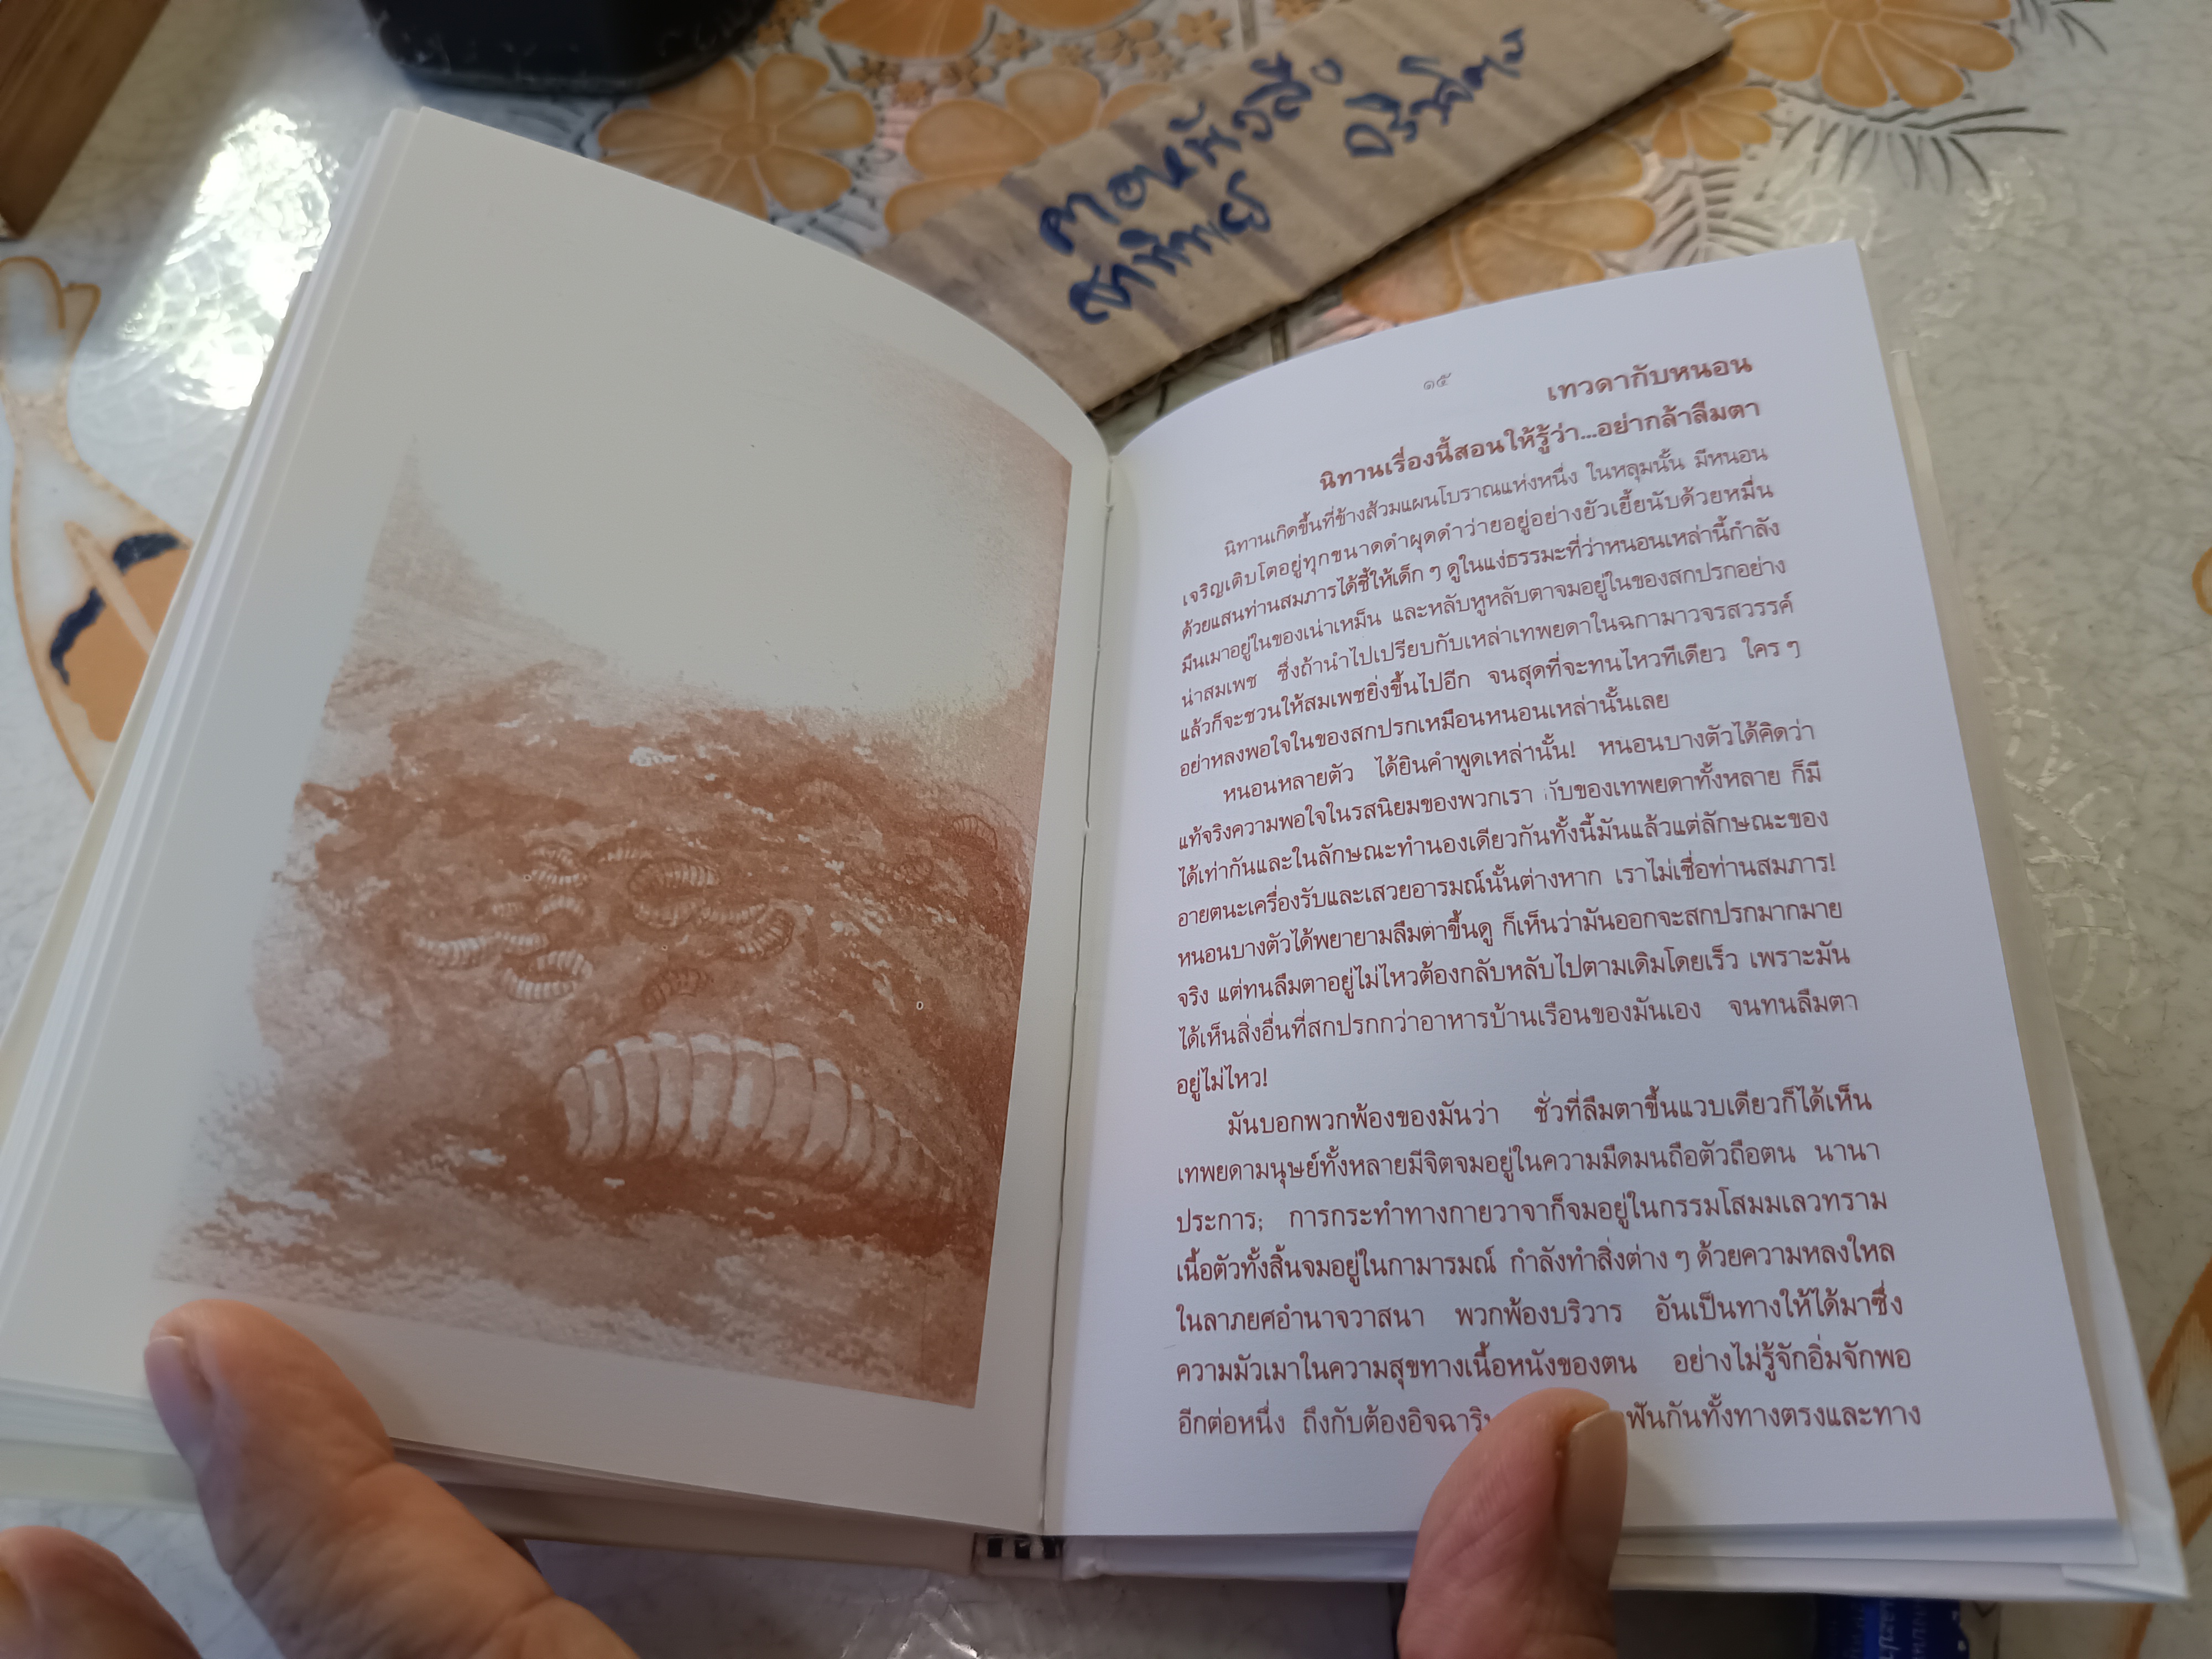 ตอนหัวลิง
จริงโดม
๑๕
เทวดากับหนอน
นิทานเรื่องนี้สอนให้รู้ว่า...อย่ากล้าลืมตา
นิทานเกิดขึ้นที่ข้างส้วมแผนโบราณแห่งหนึ่ง ในหลุมนั้น มีหนอน
เจริญเติบโตอยู่ทุกขนาดดำผุดดำว่ายอยู่อย่างยัวเยี้ยนับด้วยหมื่น
ด้วยแสนท่านสมภารได้ชี้ให้เด็ก ๆ ดูในแง่ธรรมะที่ว่าหนอนเหล่านี้กำลัง
มึนเมาอยู่ในของเน่าเหม็น และหลับหูหลับตาจมอยู่ในของสกปรกอย่าง
น่าสมเพช ซึ่งถ้านำไปเปรียบกับเหล่าเทพยดาในฉกามาวจรสวรรค์
แล้วก็จะชวนให้สมเพชยิ่งขึ้นไปอีก จนสุดที่จะทนไหวทีเดียว ใคร ๆ
อย่าหลงพอใจในของสกปรกเหมือนหนอนเหล่านั้นเลย
หนอนหลายตัว ได้ยินคำพูดเหล่านั้น! หนอนบางตัวได้คิดว่า
แท้จริงความพอใจในรสนิยมของพวกเรา กับของเทพยดาทั้งหลาย ก็มี
ได้เท่ากันและในลักษณะทำนองเดียวกันทั้งนี้มันแล้วแต่ลักษณะของ
อายตนะเครื่องรับและเสวยอารมณ์นั้นต่างหาก เราไม่เชื่อท่านสมภาร!
หนอนบางตัวได้พยายามลืมตาขึ้นดู ก็เห็นว่ามันออกจะสกปรกมากมาย
จริง แต่ทนลืมตาอยู่ไม่ไหวต้องกลับหลับไปตามเดิมโดยเร็ว เพราะมัน
ได้เห็นสิ่งอื่นที่สกปรกกว่าอาหารบ้านเรือนของมันเอง จนทนลืมตา
อยู่ไม่ไหว!
มันบอกพวกพ้องของมันว่า ชั่วที่ลืมตาขึ้นแวบเดียวก็ได้เห็น
เทพยดามนุษย์ทั้งหลายมีจิตจมอยู่ในความมืดมนถือตัวถือตน นานา
ประการ; การกระทำทางกายวาจาก็จมอยู่ในกรรมโสมมเลวทราม
เนื้อตัวทั้งสิ้นจมอยู่ในกามารมณ์ กำลังทำสิ่งต่าง ๆ ด้วยความหลงใหล
ในลาภยศอำนาจวาสนา พวกพ้องบริวาร อันเป็นทางให้ได้มาซึ่ง
ความมัวเมาในความสุขทางเนื้อหนังของตน อย่างไม่รู้จักอิ่มจักพอ
อีกต่อหนึ่ง ถึงกับต้อง ฟันกันทั้งทางตรงและทาง